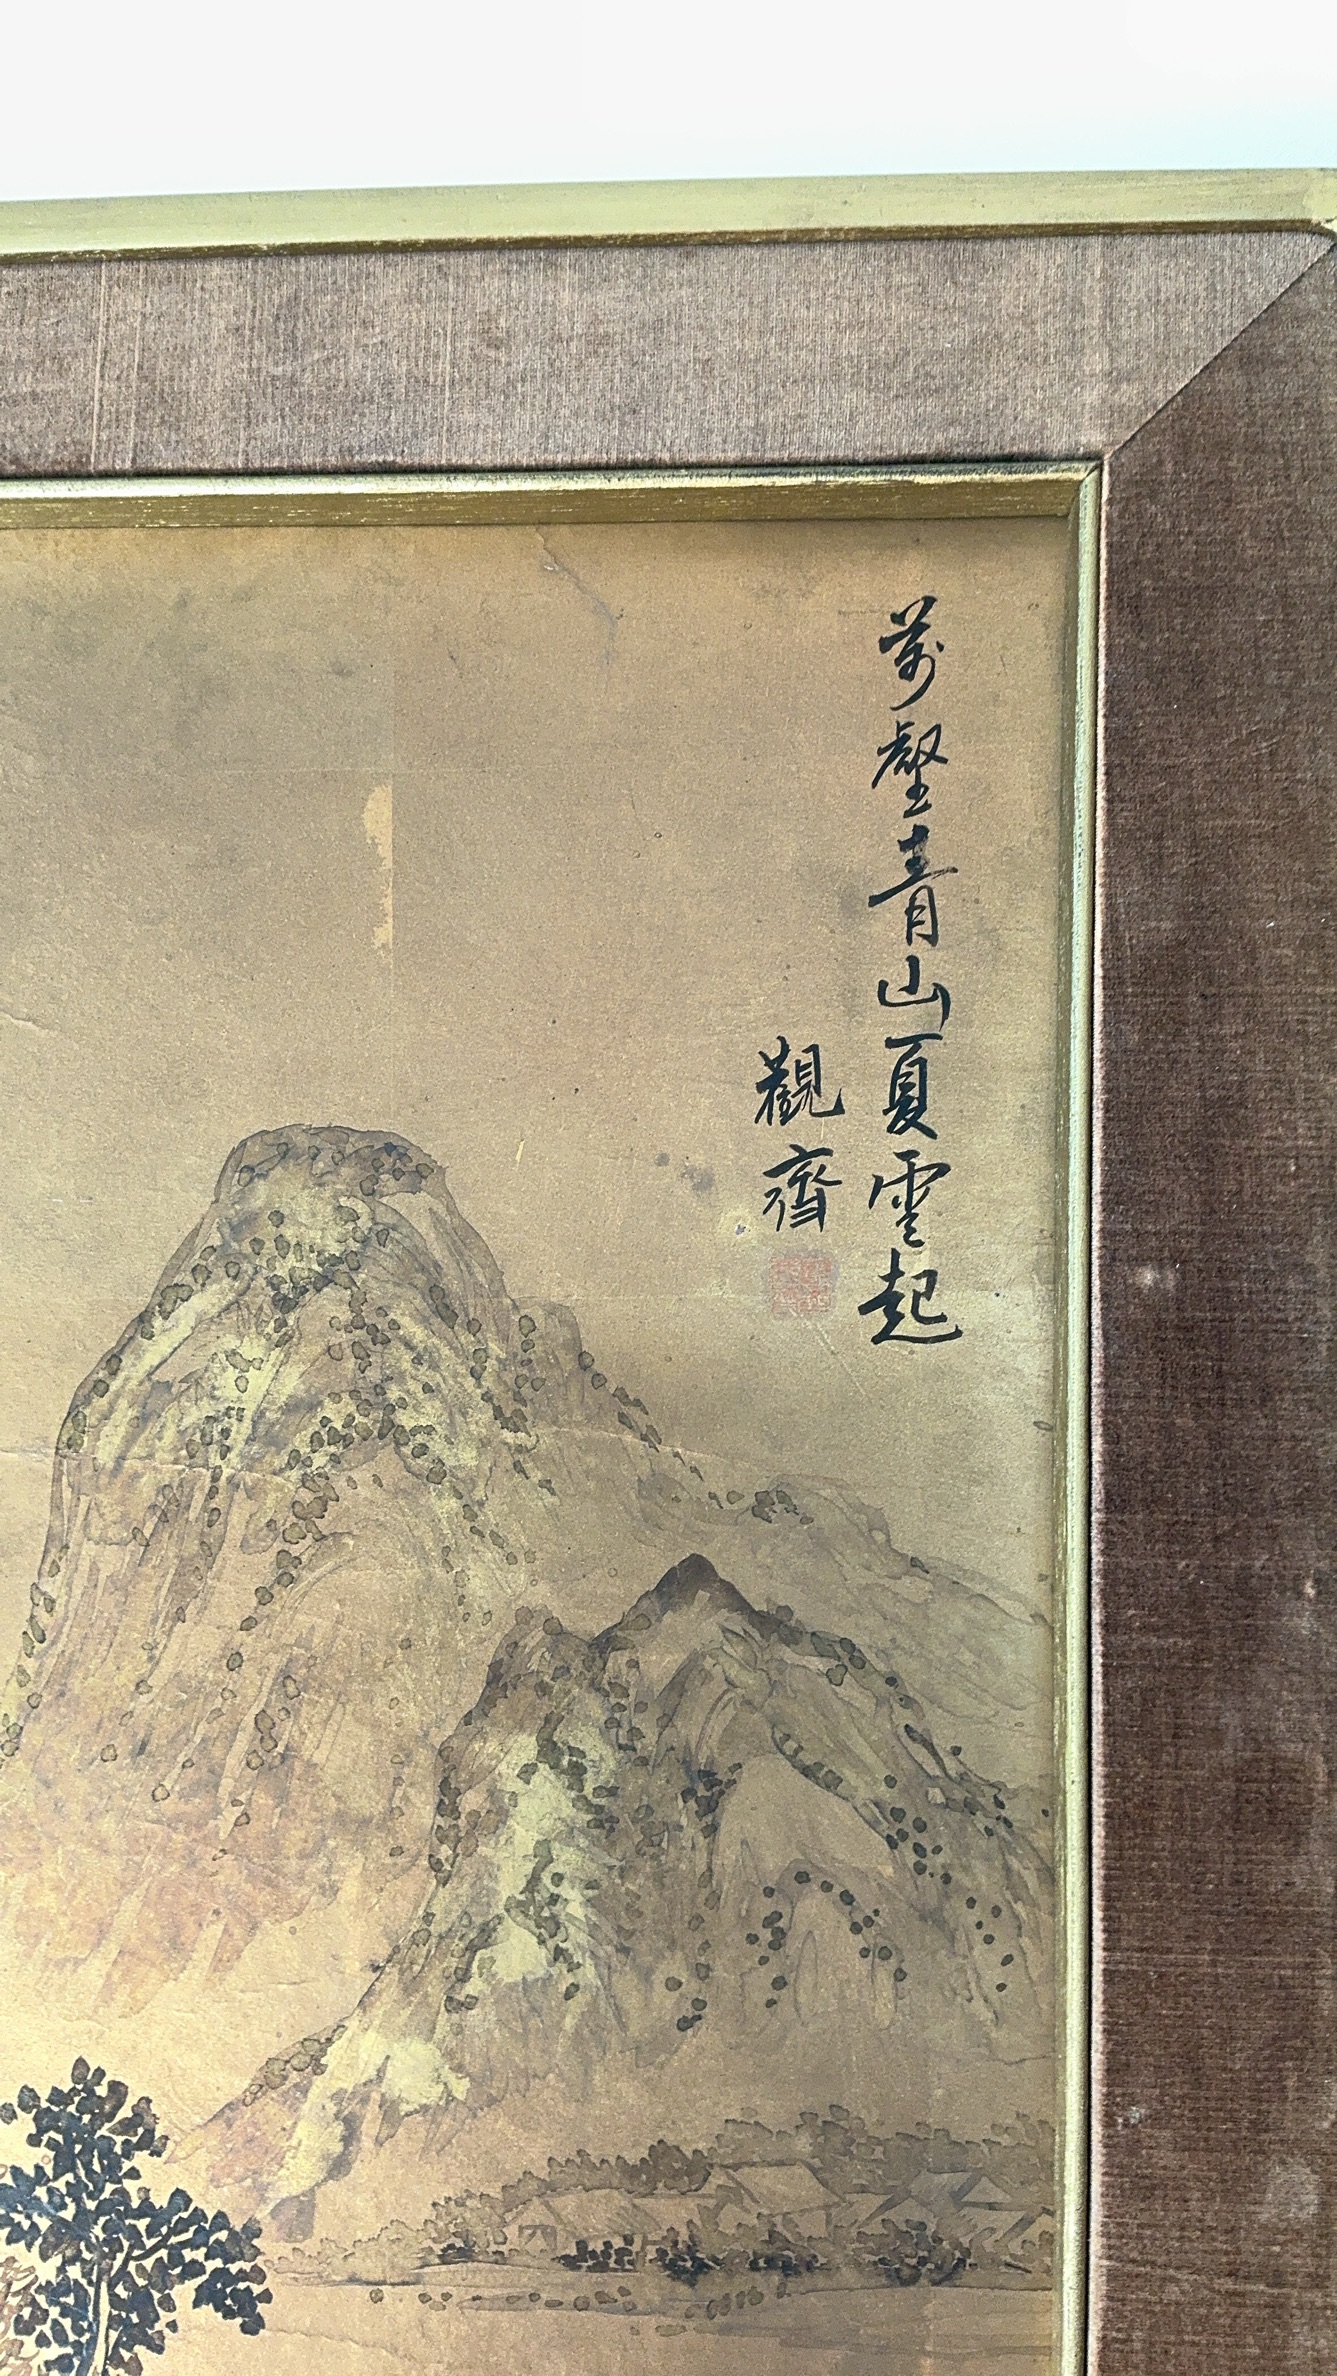 萬壑青山夏雲起
觀齋